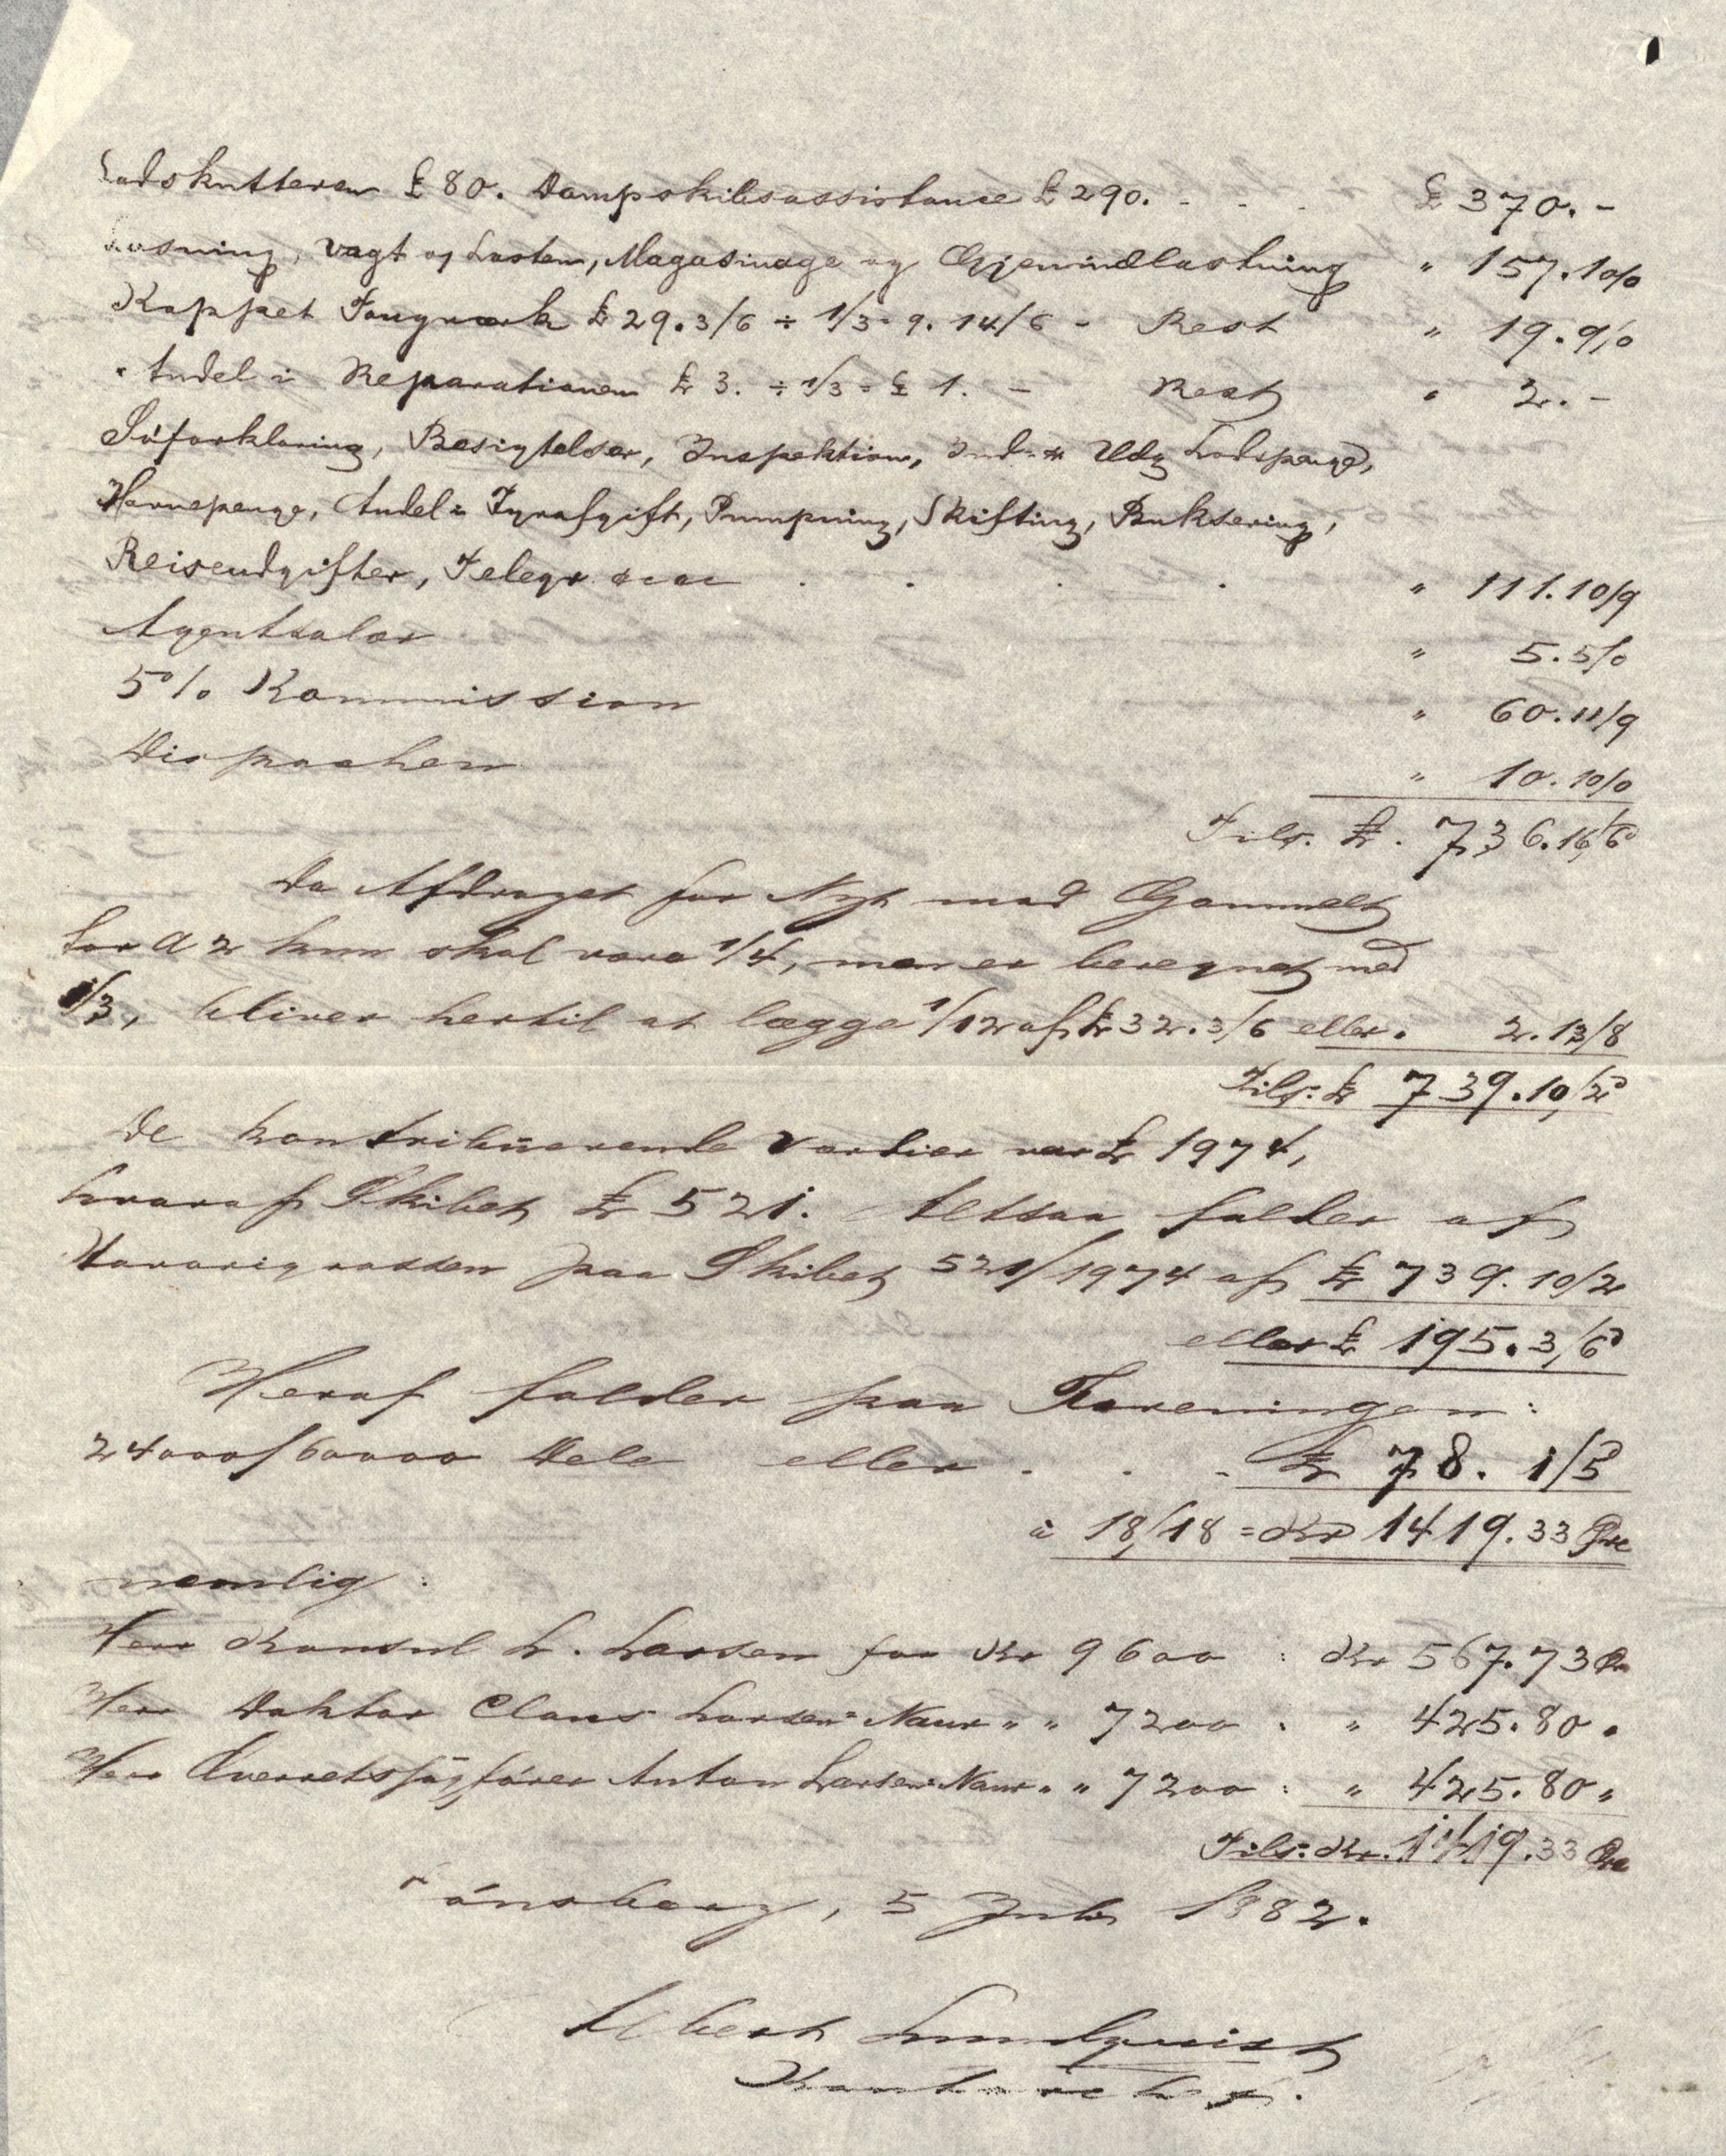 Lodskutteren £ 80. Dampskibsassistance £ 290. - . . £ 370. -
Losning, vagt og Lasten, Magasinage og Gjenindlastning " 157.10/0
Kappet Tougværk £ 29.3/6 ÷ 1/3 = 9.14/6 - Rest " 19.9/0
" Andel i Reparationen £ 3. ÷ 1/3 = £ 1. - Rest " 2. -
Söforklaring, Besigtelser, Inspektion, Ind- & Udg Lodspenge,
Havnepenge, Andel i Fyrafgift, Pumpning, Skifting, Buksering,
Reiseudgifter, Telegr &c &c . . . . " 111.10/9
Agentsalær " 5.5/0
5% Kommission " 60.11/9
Dispachen " 10.10/0
Tils. £. 736.16/6
Da Afdraget for Nyt mod Gammelt
for A 2 kun skal være 1/4, men er beregnet med
1/3, bliver hertil at lægge 1/12 af £ 32.3/6 eller. 2.13/8
Tils: £ 739.10/2
De kontribuerende Værdier var £ 1974,
hvoraf Skibet £ 521. Altsaa falder af
Havarigrossen paa Skibet 521/1974 af £ 739.10/2
eller £ 195.3/6
Heraf falder paa Foreningen:
24000/60000 Dele eller . . - £ 78. 1/5
à 18/18 = Kr 1419.33 Øre
nemlig:
Herr Konsul L. Larsen for Kr 9600 : Kr 567.73 Øre
Herr Doktor Claus Larsen Naur " " 7200 : " 425.80 "
Herr Overretssagfører Anton Larsen Naur " " 7200 : " 425.80 "
Tils: Kr. 1419.33 Øre
Tönsberg, 5 Juli 1882.
Albert Lundquist